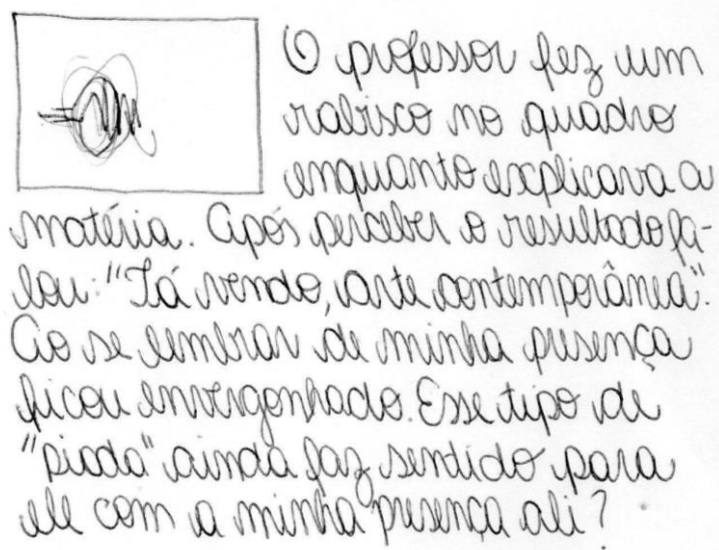 O professor fez um
rabisco no quadro
enquanto explicava a
matéria. Após perceber o resultado fa-
lou: "Tá vendo, arte contemporânea".
Ao se lembrar de minha presença
ficou envergonhado. Esse tipo de
"piada" ainda faz sentido para
ele com a minha presença ali?